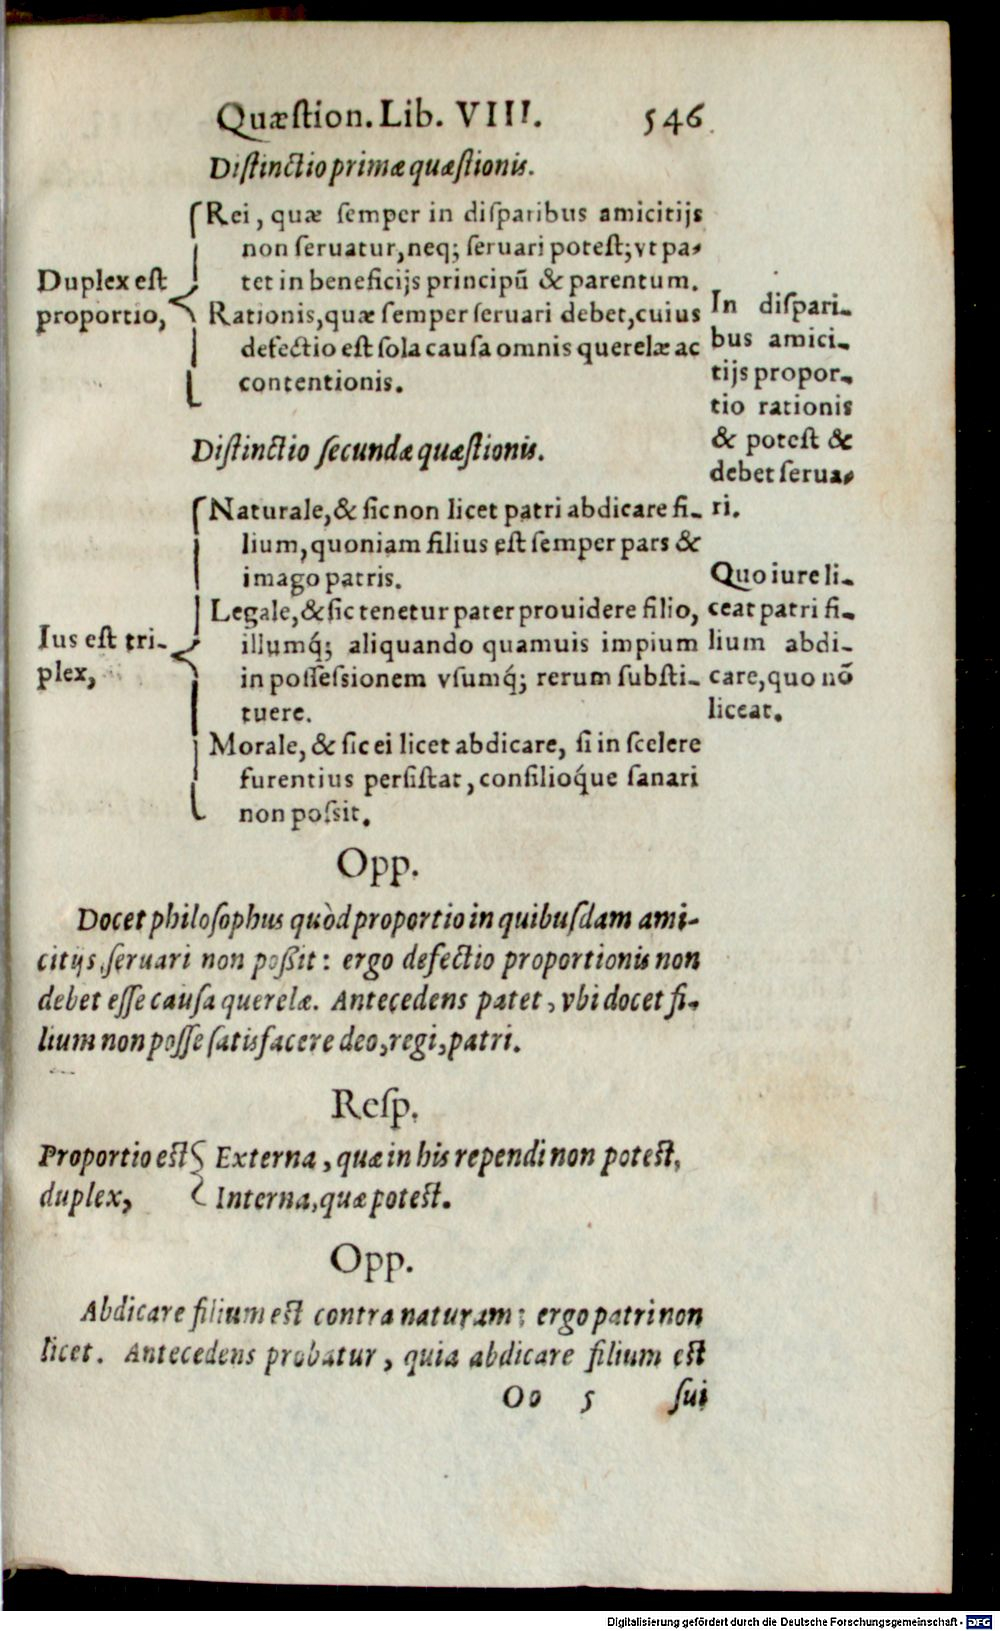 Quæstion. Lib. VIII. 546
Distinctio primæ quæstionis.
Duplex est
proportio,
Rei, quæ semper in disparibus amicitijs
non seruatur, neq; seruari potest; vt pa-
tet in beneficijs principũ & parentum.
Rationis, quæ semper seruari debet, cuius
defectio est sola causa omnis querelæ ac
contentionis.
In dispari-
bus amici-
tijs propor-
tio rationis
& potest &
debet serua-
ri.
Distinctio secundæ quæstionis.
Ius est tri-
plex,
Naturale, & sic non licet patri abdicare fi-
lium, quoniam filius est semper pars &
imago patris.
Legale, & sic tenetur pater prouidere filio,
illumq́; aliquando quamuis impium
in possessionem vsumq́; rerum substi-
tuere.
Morale, & sic ei licet abdicare, si in scelere
furentius persistat, consilioq́ue sanari
non possit.
Quo iure li-
ceat patri fi-
lium abdi-
care, quo nõ
liceat.
Opp.
Docet philosophus quòd proportio in quibusdam ami-
citijs seruari non poßit: ergo defectio proportionis non
debet esse causa querelæ. Antecedens patet, vbi docet fi-
lium non posse satisfacere deo, regi, patri.
Resp.
Proportio est
duplex,
Externa, quæ in his rependi non potest.
Interna, quæ potest.
Opp.
Abdicare filium est contra naturam: ergo patri non
licet. Antecedens probatur, quia abdicare filium est
Oo 5 sui
Digitalisierung gefördert durch die Deutsche Forschungsgemeinschaft - DFG